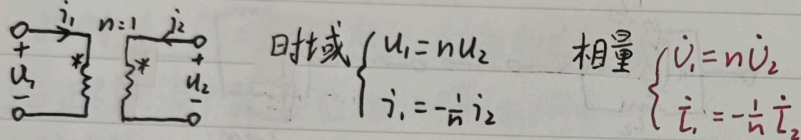 i₁ n:1 i₂
+ * * +
u₁ u₂
- -
时域 { u₁=nu₂
i₁=-1/n i₂
相量 { U̇₁=nU̇₂
İ₁=-1/n İ₂